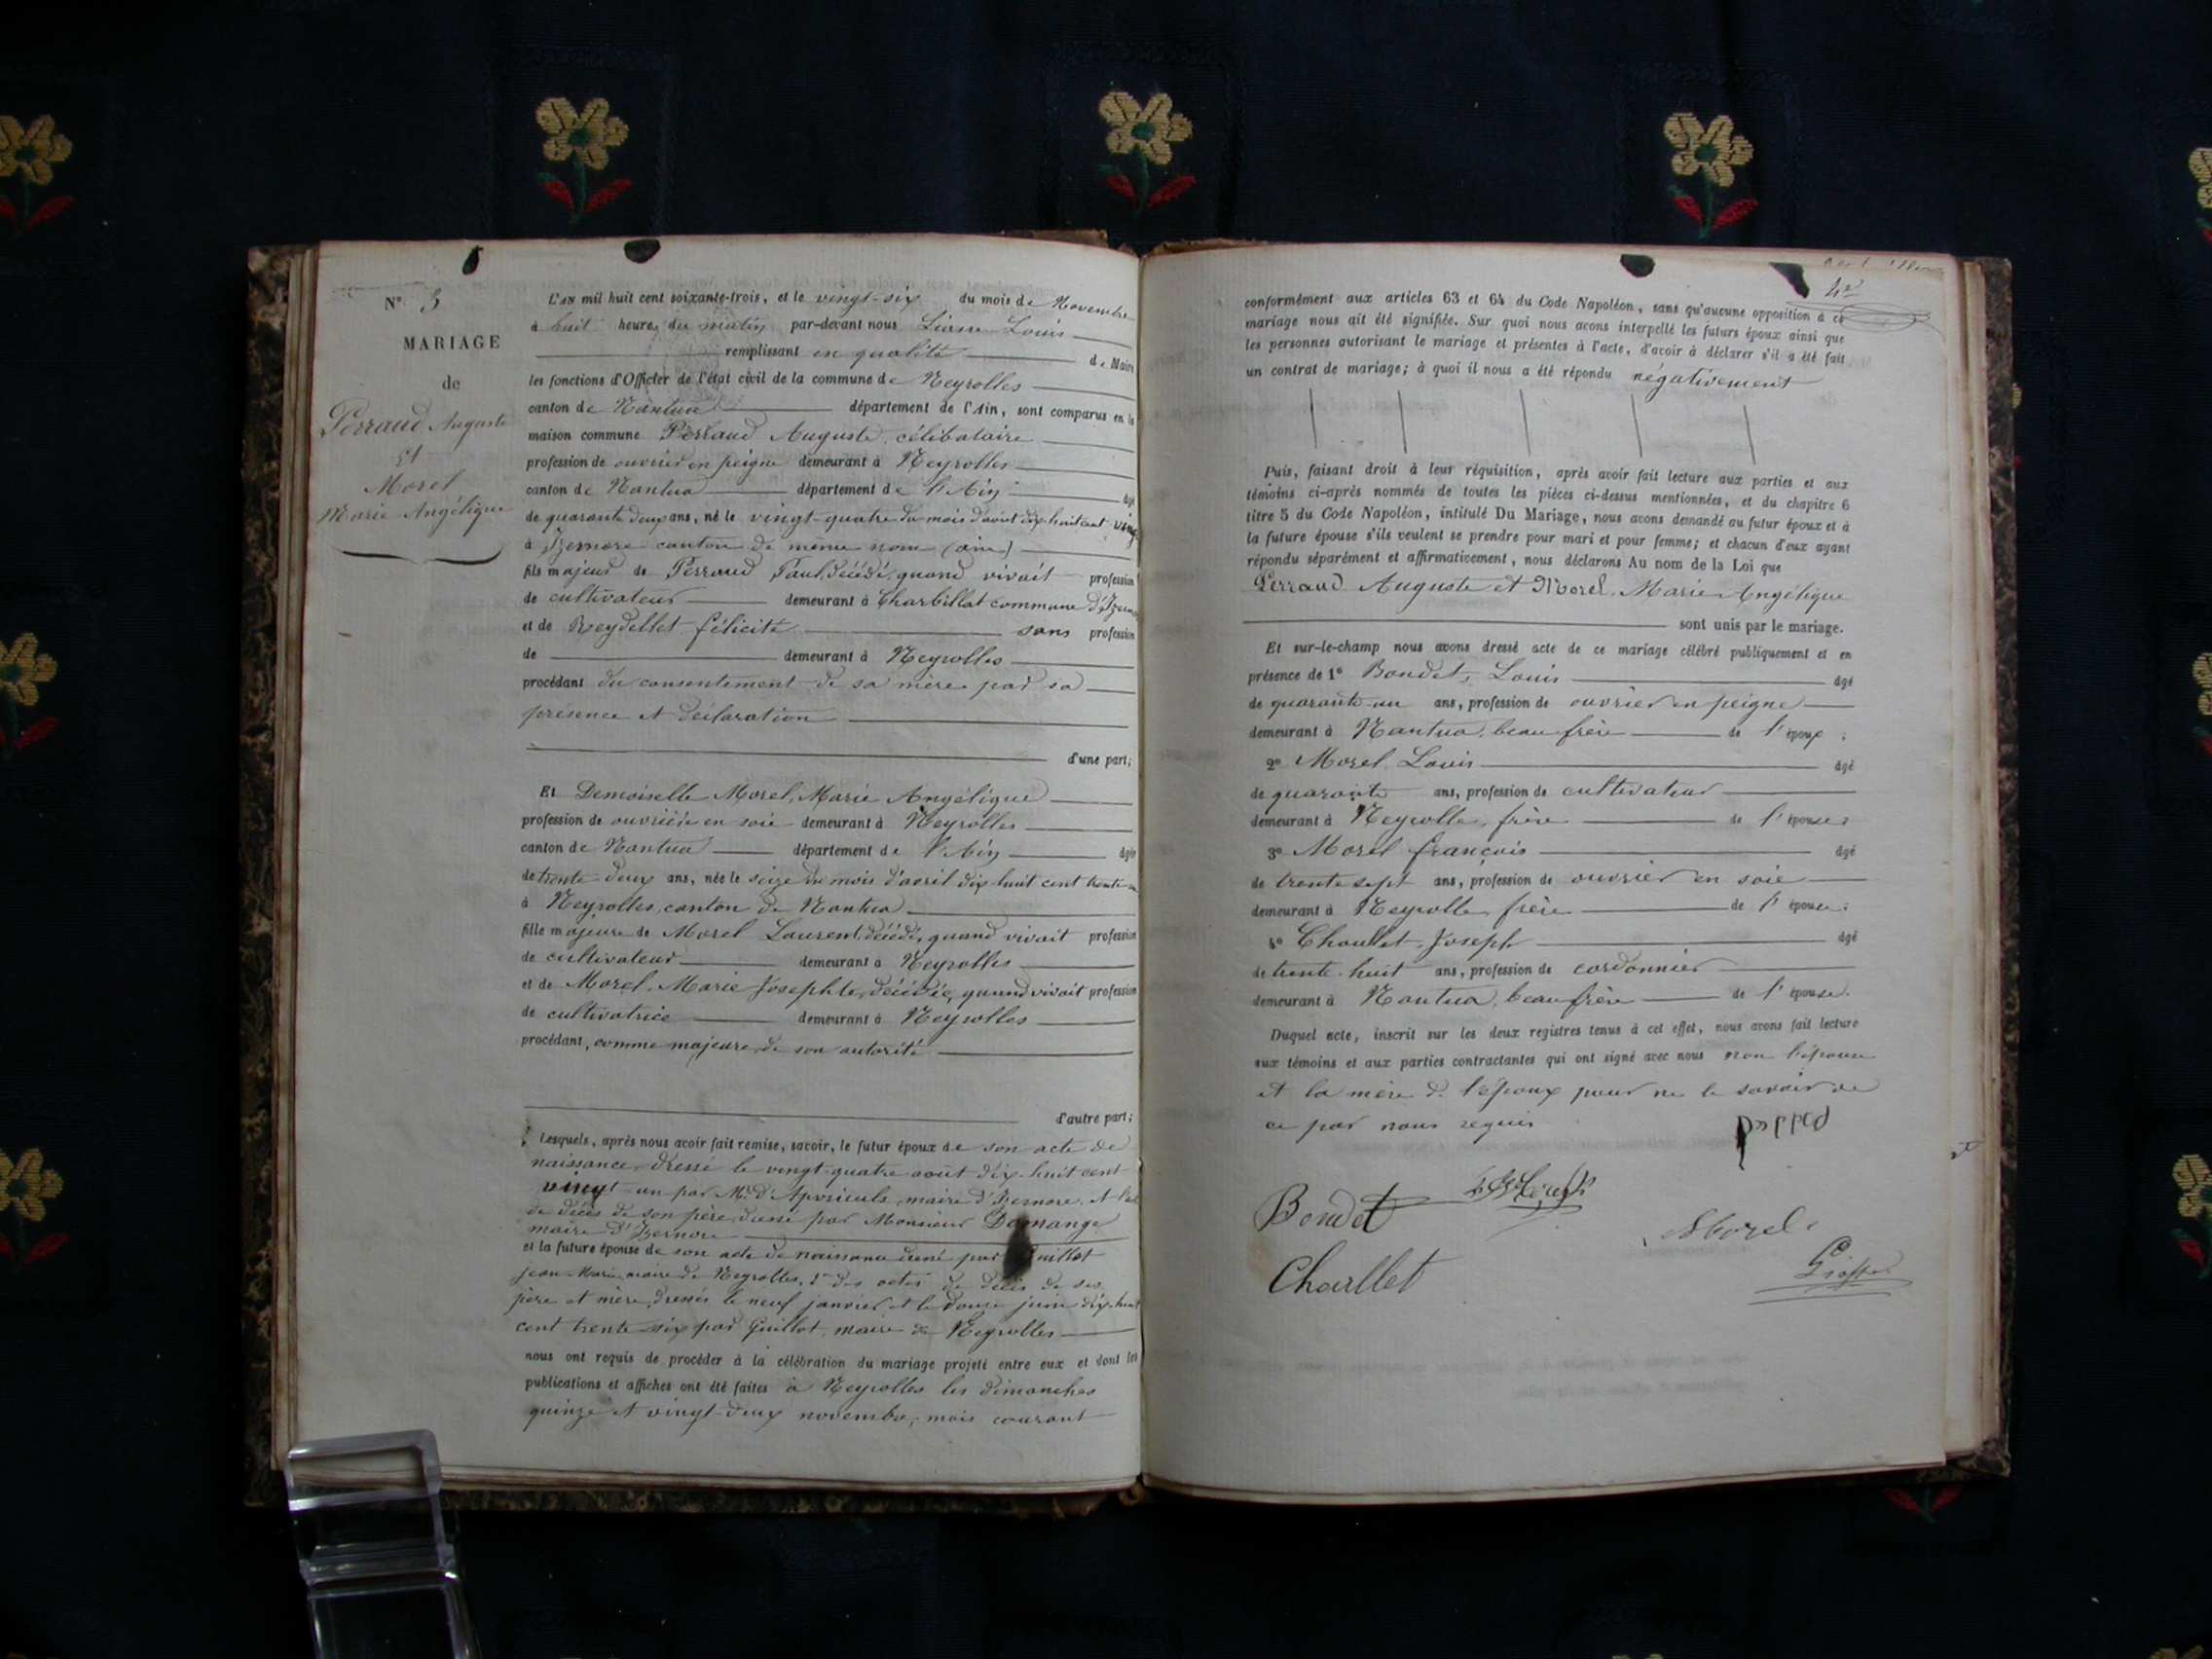 N° 3
MARIAGE
de
Perraud Auguste
et
Morel
Marie Angélique
L'an mil huit cent soixante-trois, et le vingt-six du mois de Novembre
à huit heures du matin par-devant nous Louis
remplissant en qualité de Maire
les fonctions d'Officier de l'état civil de la commune de Neyrolles
canton de Nantua département de l'Ain, sont comparus en la
maison commune Perraud Auguste, célibataire
profession de ouvrier en peigne demeurant à Neyrolles
canton de Nantua département de l'Ain âgé
de quarante deux ans, né le vingt-quatre du mois d'août dix huit cent vingt
à Izernore canton de même nom (ain)
fils majeur de Perraud Paul, décédé, quand vivait profession
de cultivateur demeurant à Charbillat commune d'Izernore
et de Reydellet félicité sans profession
de demeurant à Neyrolles
procédant du consentement de sa mère par sa
présence et déclaration
d'une part;
Et Demoiselle Morel, Marie Angélique
profession de ouvrière en soie demeurant à Neyrolles
canton de Nantua département de l'Ain âgée
de trente deux ans, née le seize du mois d'avril dix huit cent trente-un
à Neyrolles, canton de Nantua
fille majeure de Morel Laurent, décédé, quand vivait profession
de cultivateur demeurant à Neyrolles
et de Morel, Marie Josephte, décédée, quand vivait profession
de cultivatrice demeurant à Neyrolles
procédant, comme majeure, de son autorité
d'autre part;
Lesquels, après nous avoir fait remise, savoir, le futur époux de son acte de
naissance, dressé le vingt-quatre août dix-huit cent
vingt-un par Mr d' maire d'Izernore, et l'acte
de décès de son père, dressé par Monsieur Domange
maire d'Izernore
et la future épouse de son acte de naissance dressé par Guillot
jean-Marie, maire de Neyrolles, 2° des actes de décès de ses
père et mère, dressés le neuf janvier et le douze juin dix-huit
cent trente-six par Guillot, maire de Neyrolles
nous ont requis de procéder à la célébration du mariage projeté entre eux et dont les
publications et affiches ont été faites à Neyrolles les dimanches
quinze et vingt-deux novembre, mois courant
conformément aux articles 63 et 64 du Code Napoléon, sans qu'aucune opposition à ce
mariage nous ait été signifiée. Sur quoi nous avons interpellé les futurs époux ainsi que
les personnes autorisant le mariage et présentes à l'acte, d'avoir à déclarer s'il a été fait
un contrat de mariage; à quoi il nous a été répondu négativement
Puis, faisant droit à leur réquisition, après avoir fait lecture aux parties et aux
témoins ci-après nommés de toutes les pièces ci-dessus mentionnées, et du chapitre 6
titre 5 du Code Napoléon, intitulé Du Mariage, nous avons demandé au futur époux et à
la future épouse s'ils veulent se prendre pour mari et pour femme; et chacun d'eux ayant
répondu séparément et affirmativement, nous déclarons Au nom de la Loi que
Perraud Auguste et Morel, Marie-Angélique
sont unis par le mariage.
Et sur-le-champ nous avons dressé acte de ce mariage célébré publiquement et en
présence de 1° Boudet, Louis âgé
de quarante-un ans, profession de ouvrier en peigne
demeurant à Nantua, beau frère de l'époux;
2° Morel Louis âgé
de quarante ans, profession de cultivateur
demeurant à Neyrolles, frère de l'épouse;
3° Morel françois âgé
de trente sept ans, profession de ouvrier en soie
demeurant à Neyrolles, frère de l'épouse;
4° Choullet, Joseph âgé
de trente-huit ans, profession de cordonnier
demeurant à Nantua, beau frère de l'épouse.
Duquel acte, inscrit sur les deux registres tenus à cet effet, nous avons fait lecture
aux témoins et aux parties contractantes qui ont signé avec nous non l'épouse
et la mère de l'époux pour ne le savoir de
ce par nous requis
Boudet
Morel
Choullet